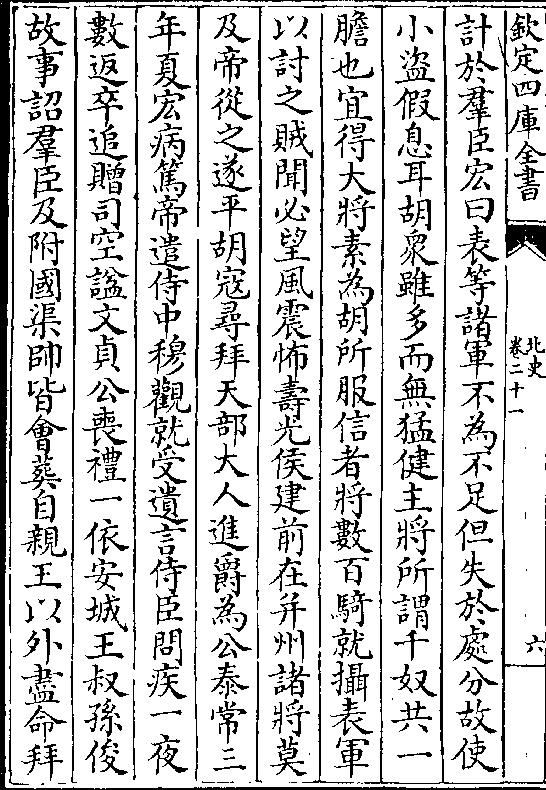 欽定四庫全書
北史
卷二十一
六
計於羣臣宏曰表等諸軍不為不足但失於處分故使
小盜假息耳胡衆雖多而無猛健主將所謂千奴共一
膽也宜得大將素為胡所服信者將數百騎就攝表軍
以討之賊聞必望風震怖壽光侯建前在并州諸將莫
及帝從之遂平胡寇尋拜天部大人進爵為公泰常三
年夏宏病篤帝遣侍中穆觀就受遺言侍臣問疾一夜
數返卒追贈司空諡文貞公喪禮一依安城王叔孫俊
故事詔羣臣及附國渠帥皆會葬自親王以外盡命拜